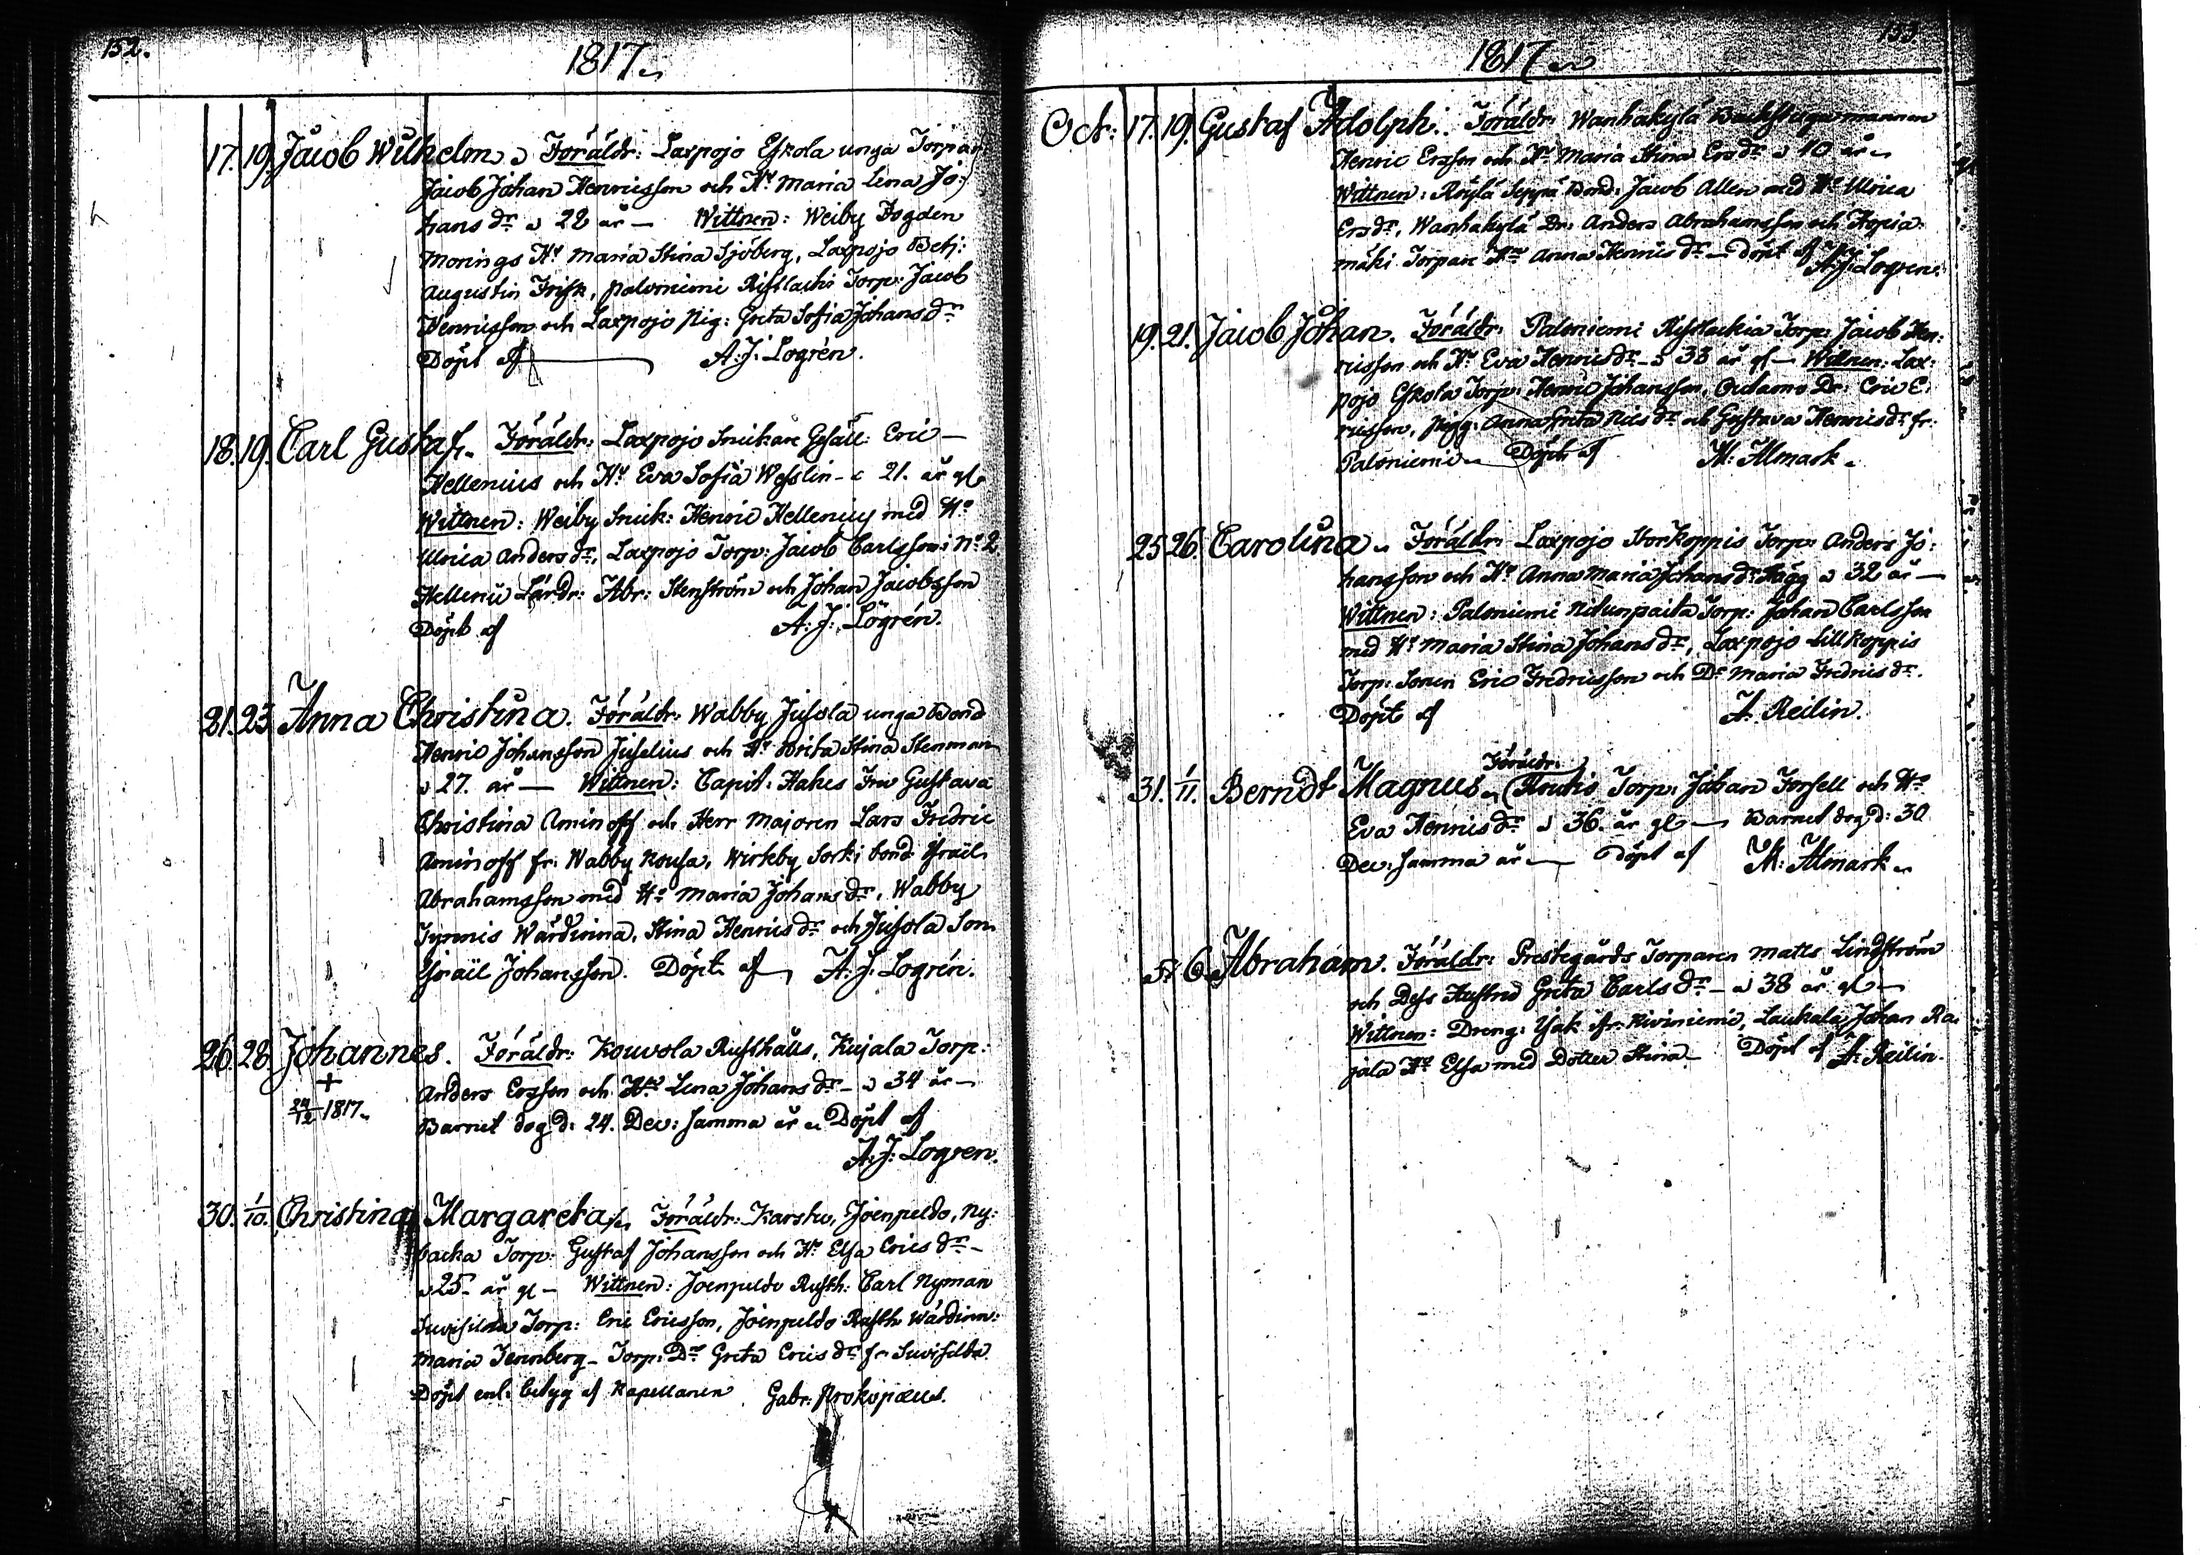 152.
1817.
17. 19. Jacob Wilhelm Föräldr: Laxpojo Eskola unga Torpar
Jacob Johan Henricsson och Hu Maria Lena Jo-
hans dr 28 år — Wittnen: Weiby Fogden
Morings Hu Maria Stina Sjöberg, Laxpojo Betj:
Augustin Frisk, Paloniemi Torp: Jacob
Henricsson och Laxpojo Pig: Greta Sofia Johans dr
Döpt af A: J: Logrén.
18. 19. Carl Gustaf. Föräldr: Laxpojo Snickare Gesäll: Eric —
Hellenius och Hu Eva Sofia Wesslin - 21. år gl
Wittnen: Weiby Snick: Henric Hellenius med Hu
Ulrica Anders dr, Laxpojo Torp: Jacob Carlsson: No 2
Hellenii Lärdr: Abr: Stenström och Johan Jacobsson
Döpt af A: J: Logrén.
21. 23. Anna Christina. Föräldr: Wabby Jusola unga Bond
Henric Johansson Juselius och Hu Brita Stina Stenman
27. år — Wittnen: Capit: Hakes Fru Gustava
Christina Aminoff och Herr Majoren Lars Fredric
Aminoff fr: Wabby Wirkby Sorki bond Israel
Abrahamsson med Hu Maria Johans dr, Wabby
Wärdinna, Stina Henrics dr och Jusola Son
Israël Johansson. Döpt af A. J. Logrén.
26. 28. Johannes. Föräldr: Kouvola Rusthålls, Kujala Torp:
+ Anders Ersson och Hu Lena Johans dr - 34 år -
24/12 1817. Barnet dog d: 24. Dec: samma år Döpt af
A. J: Logren.
30. 1/10. Christina Margareta Föräldr: Karstu, Joenpeldo, Ny-
backa Torp: Gustaf Johansson och Hu Elsa Erics dr -
25 år gl - Wittnen: Joenpeldo Rusth: Carl Nyman
Torp: Eric Ericsson, Joenpeldo Rusth Wärdinn:
Maria Tennberg - Torp: Dr Greta Erics dr fr
Döpt enl: betyg af Kapellanen Gabr: Prokopæus.
153.
1817
Oct: 17. 19. Gustaf Adolph. Föräldr: Wanhakylä Backstugumannen
Henric Ersson och Hu Maria Stina Ers dr 40 år
Wittnen: Röylä Seppä Bond: Jacob Allen med Hu Ulrica
Ers dr, Wanhakylä Dr: Anders Abrahamsson och
mäki Torpare Hu Anna Henrics dr - döpt af A: J: Logren.
19. 21. Jacob Johan. Föräldr: Paloniemi Torp: Jacob Hen-
ricsson och Hu Eva Henrics dr - 33 år gl - Wittnen: Lax-
pojo Eskola Torp: Henric Johansson, Dr: Eric E-
ricsson, Pigg: Anna Greta Nils dr och Gustava Henrics dr fr:
Paloniemi Döpt af M: Almark
25 26. Carolina Föräldr: Laxpojo Storkoppis Torp: Anders Jo-
hansson och Hu Anna Maria Johans dr Hägg 32 år -
Wittnen: Paloniemi Torp: Johan Carlsson
med Hu Maria Stina Johans dr, Laxpojo Lillkoppis
Torp: Sonen Eric Fredricsson och Dr Maria Fredrics dr.
Döpt af A: Reilin.
Föräldr:
31. 1/11. Berndt Magnus Torp: Johan Forsell och Hu
Eva Henrics dr 36. år gl - Barnet dog d: 30
Dec: samma år - döpt af M: Almark
6 Abraham. Föräldr: Prestegårds Torparen Matts Lindström
och Dess Hustru Greta Carls dr - 38 år gl -
Wittnen: Dreng: Isak fr: Kiviniemi, Laukala Johan Ra-
jala Hu Elsa med Dotter Stina - Döpt af A: Reilin.